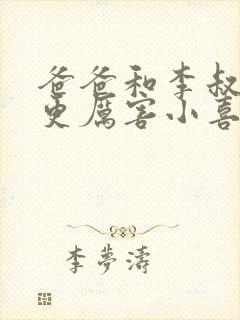 爸爸和李叔
更厉害小喜
李夢濤